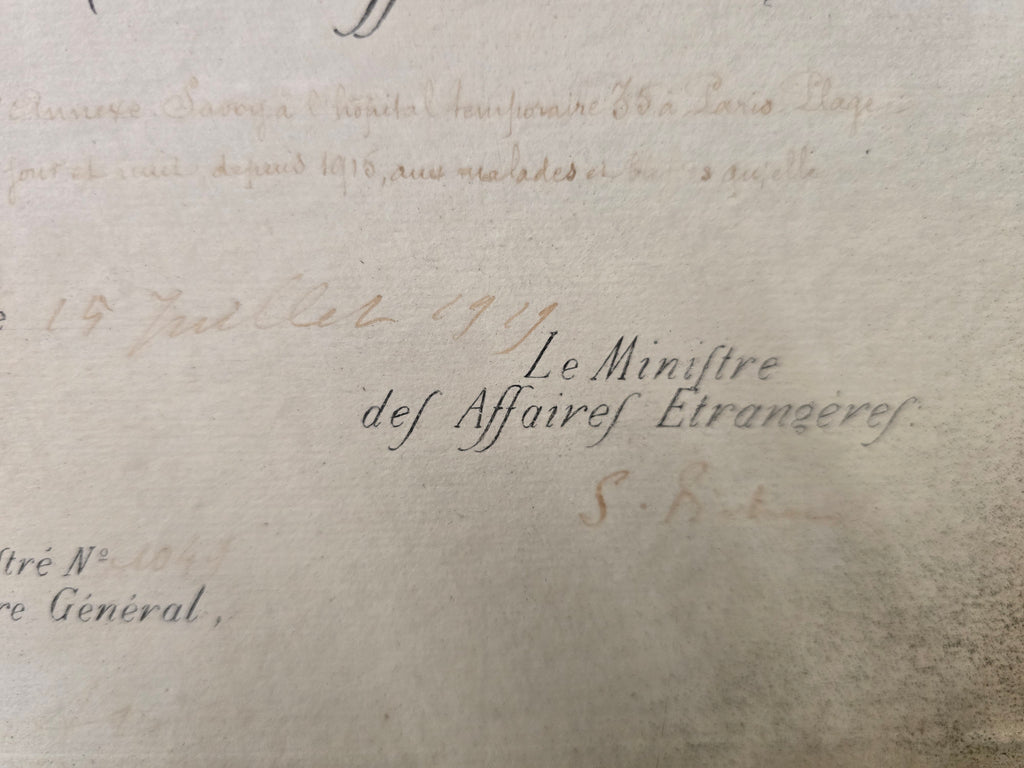 Annexe Savoy à l'hôpital temporaire 35 à Paris Plage
jour et nuit, depuis 1915, aux malades et qu'elle
15 Juillet 1919
Le Miniſtre
deſ Affaireſ Etrangèreſ:
S. Pichon
ſtré Nº 104
re Général,